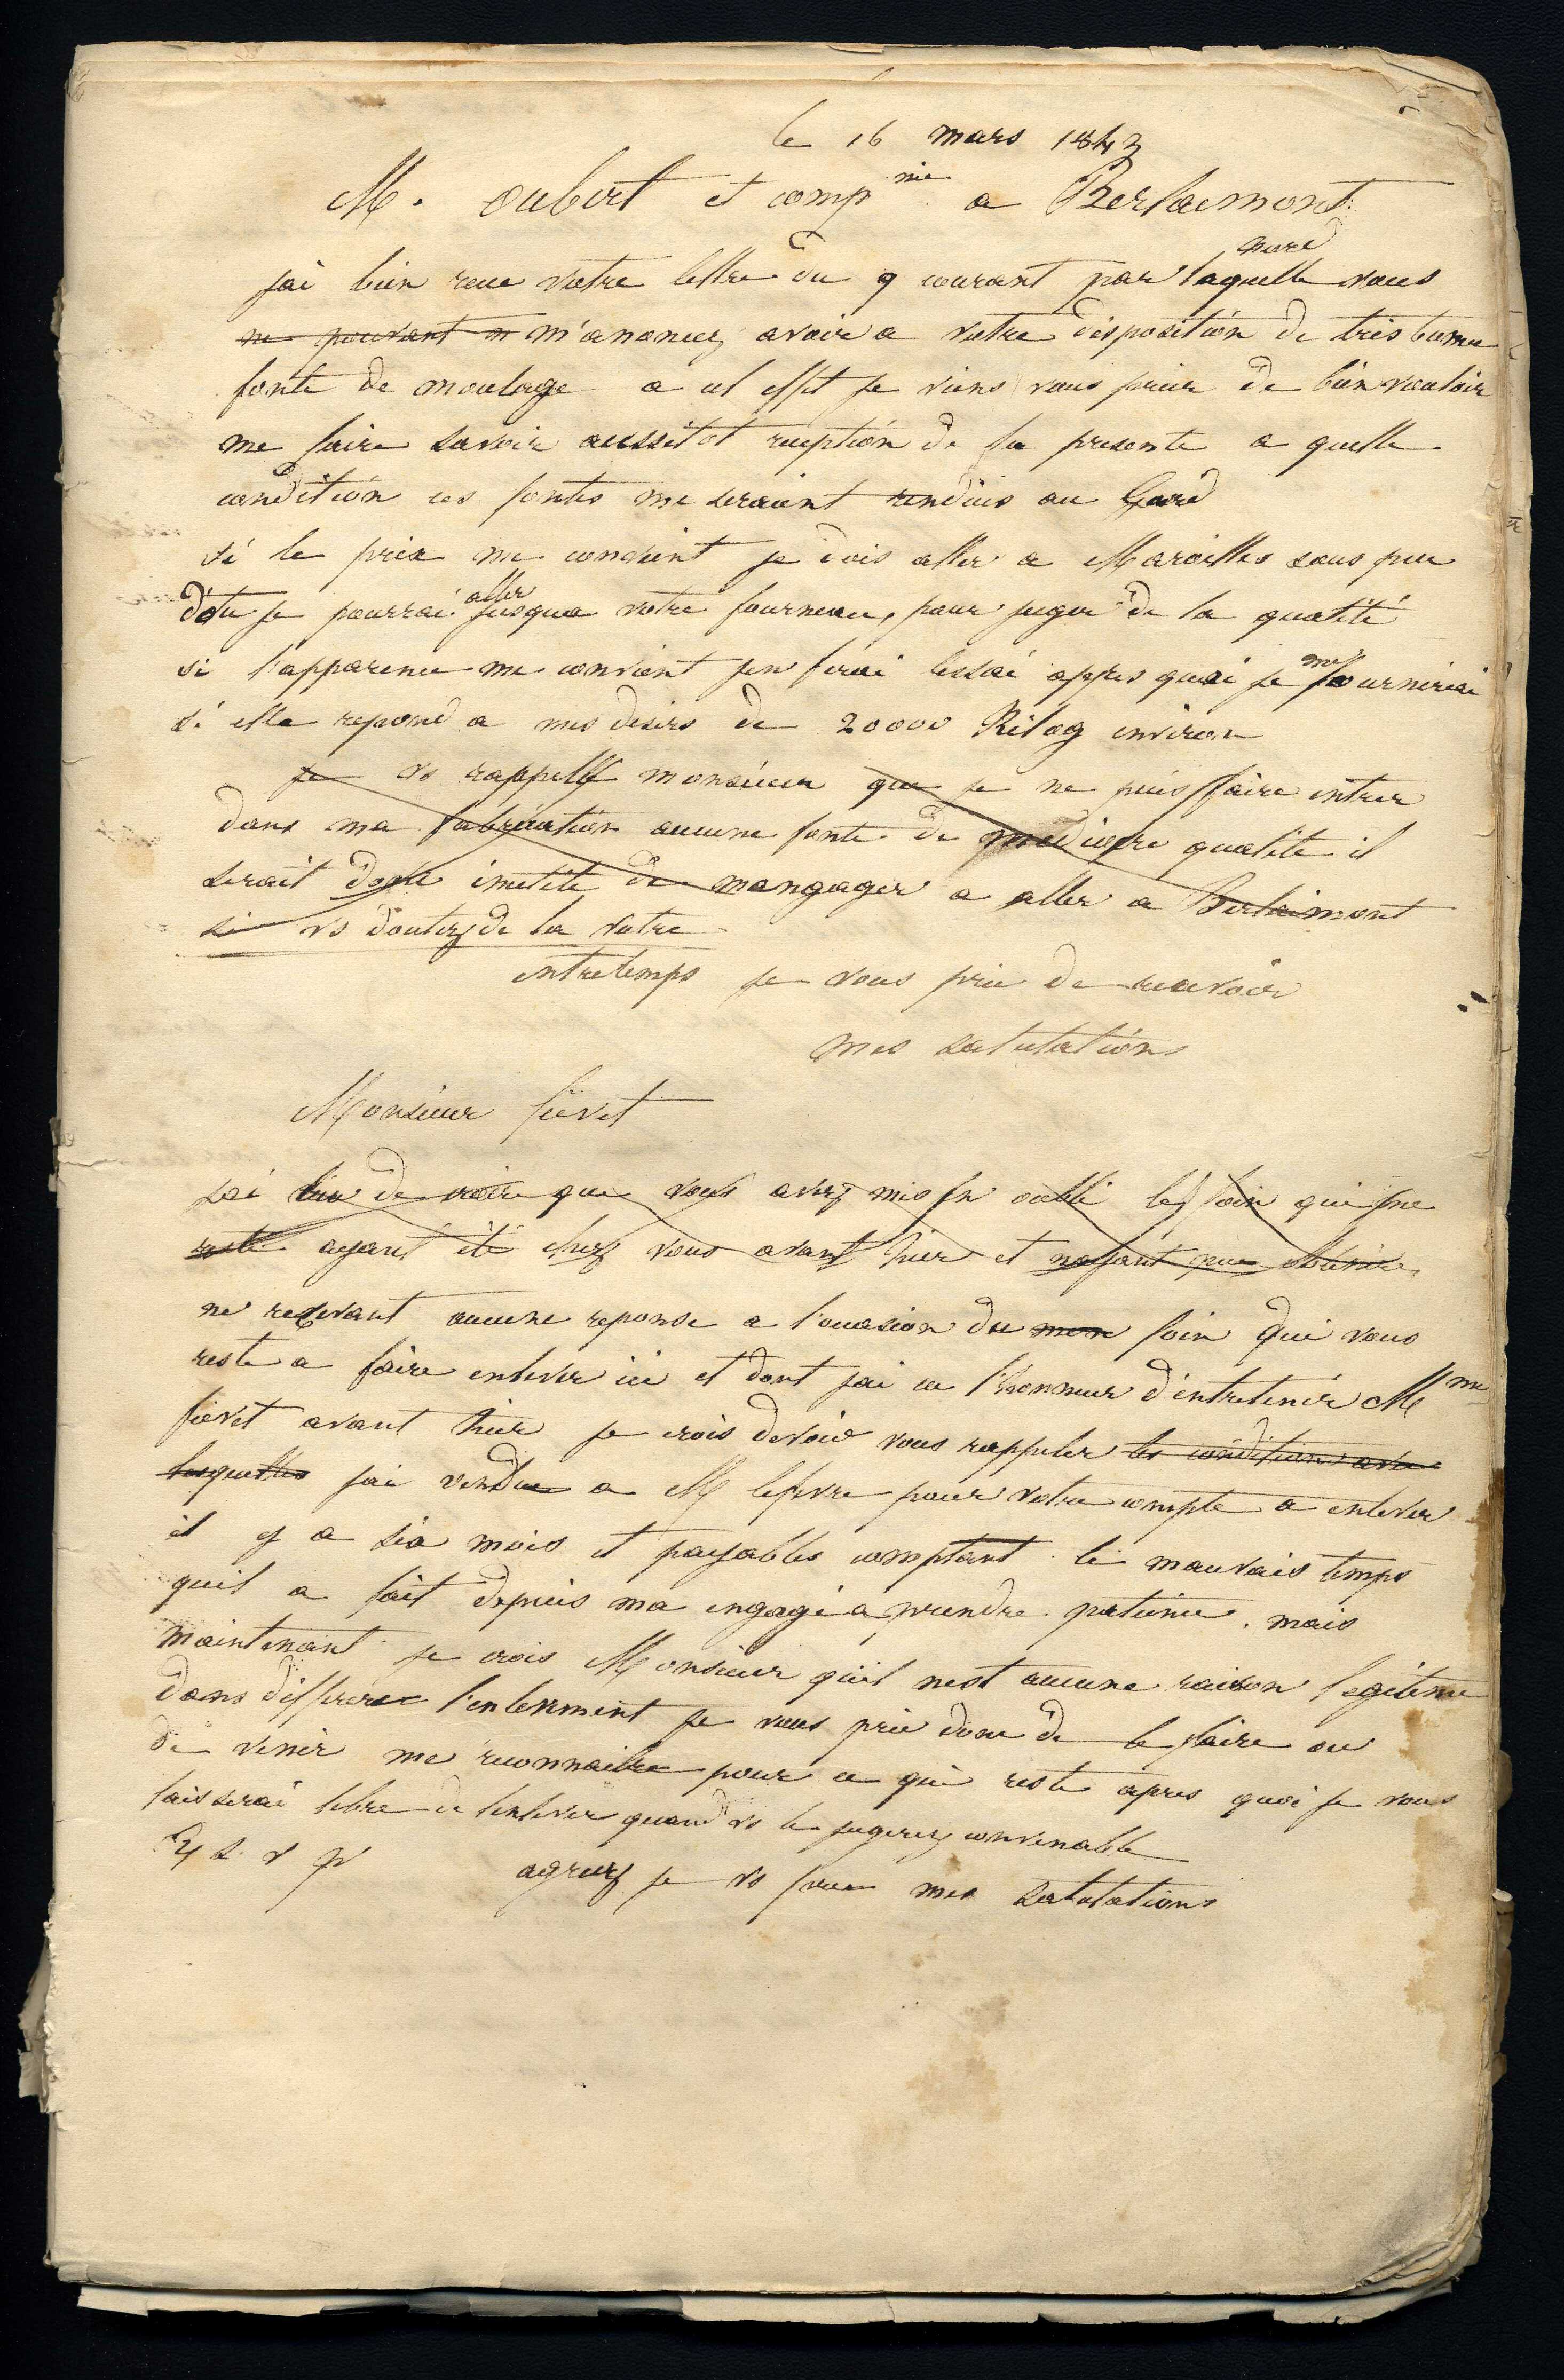 le 16 mars 1843
M. oubert et comp nie a Berlaimont
nord
jai bien recue votre lettre du 9 courant par laquelle vous
ne pouvant m'anoncez avoir a votre disposition de tres bonne
fonte de moulage a cet effet je viens vous prier de bien vouloir
me faire savoir aussitot reception de la presente a quelle
condition ces fontes me seraient rendues au Gard
si le prix me convient je dois aller a Maroilles sous peu
dou je pourrai aller jusqua votre fourneau, pour juger de la qualité
si l'apparence me convient jen ferai lessai appres quoi je me fournirai
si elle repond a mes desirs de 20000 Kilog environ
je vs rappelle monsieur que je ne puis faire entrer
dans ma fabrication aucune fonte de mediocre qualite il
serait donc inutile de mangager a aller a Berlaimont
si vs doutez de la votre
entretemps je vous prie de recevoir
mes salutations
Monsieur fievet
jai lieu de croire que vous avez mis en oubli les foin qui me
reste ayant été chez vous avant hier et nayant pue obtenir
ne recevant aucune reponse a l'occasion du mon foin qui vous
reste a faire enlever ici et dont jai eu l'honneur d'entretenir Mme
fievet avant hier je crois devoir vous rappeler les conditions avec
lesquelles jai vendue a M lefevre pour votre compte a enlever
il y a six mois et payables comptant le mauvais temps
quil a fait depuis ma engagé a prendre patience. mais
maintenant je crois Monsieur quil nest aucune raison legitime
dans differer l'enlevement je vous prie donc de le faire ou
de venir me reconnaitre pour ce qui reste apres quoi je vous
laisserai libre de lenlever quand vs le jugerez convenable
s v p agreez je vs prie mes salutations